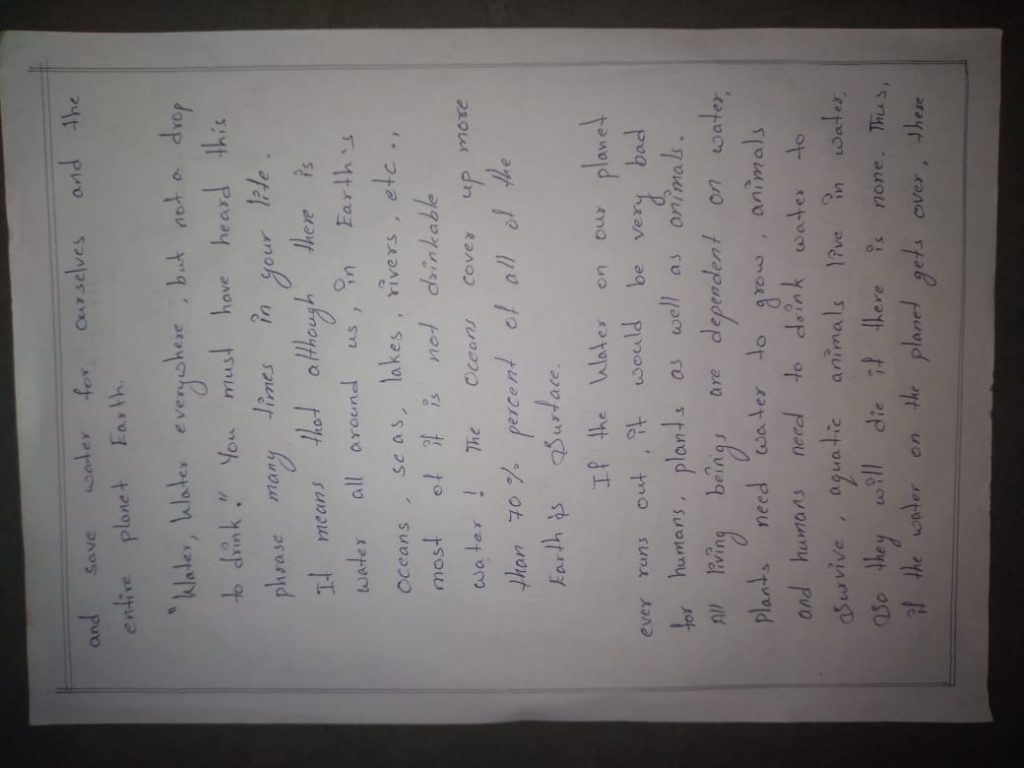 and save water for ourselves and the
entire planet Earth.
"Water, Water everywhere, but not a drop
to drink." You must have heard this
phrase many times in your life.
It means that although there is
water all around us, in Earth's
oceans, seas, lakes, rivers, etc..,
most of it is not drinkable
water! The oceans cover up more
than 70% percent of all of the
Earth's Surface.
If the Water on our planet
ever runs out, it would be very bad
for humans, plants as well as animals.
All living beings are dependent on water,
plants need water to grow, animals
and humans need to drink water to
Survive, aquatic animals live in water,
So they will die if there is none. Thus,
if the water on the planet gets over, there